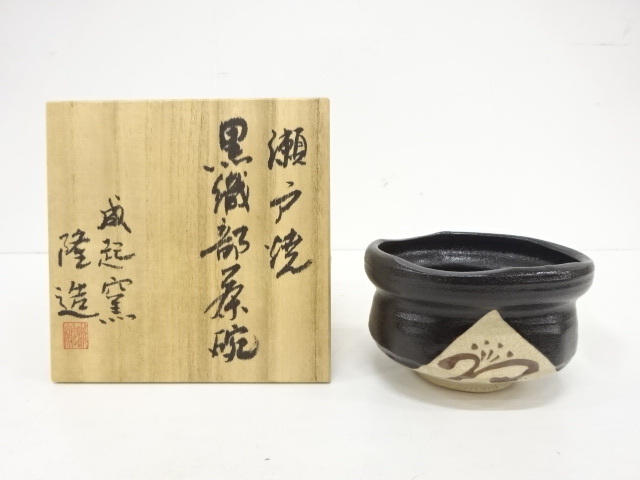 瀬戸焼
黒織部茶碗
成起窯
隆造